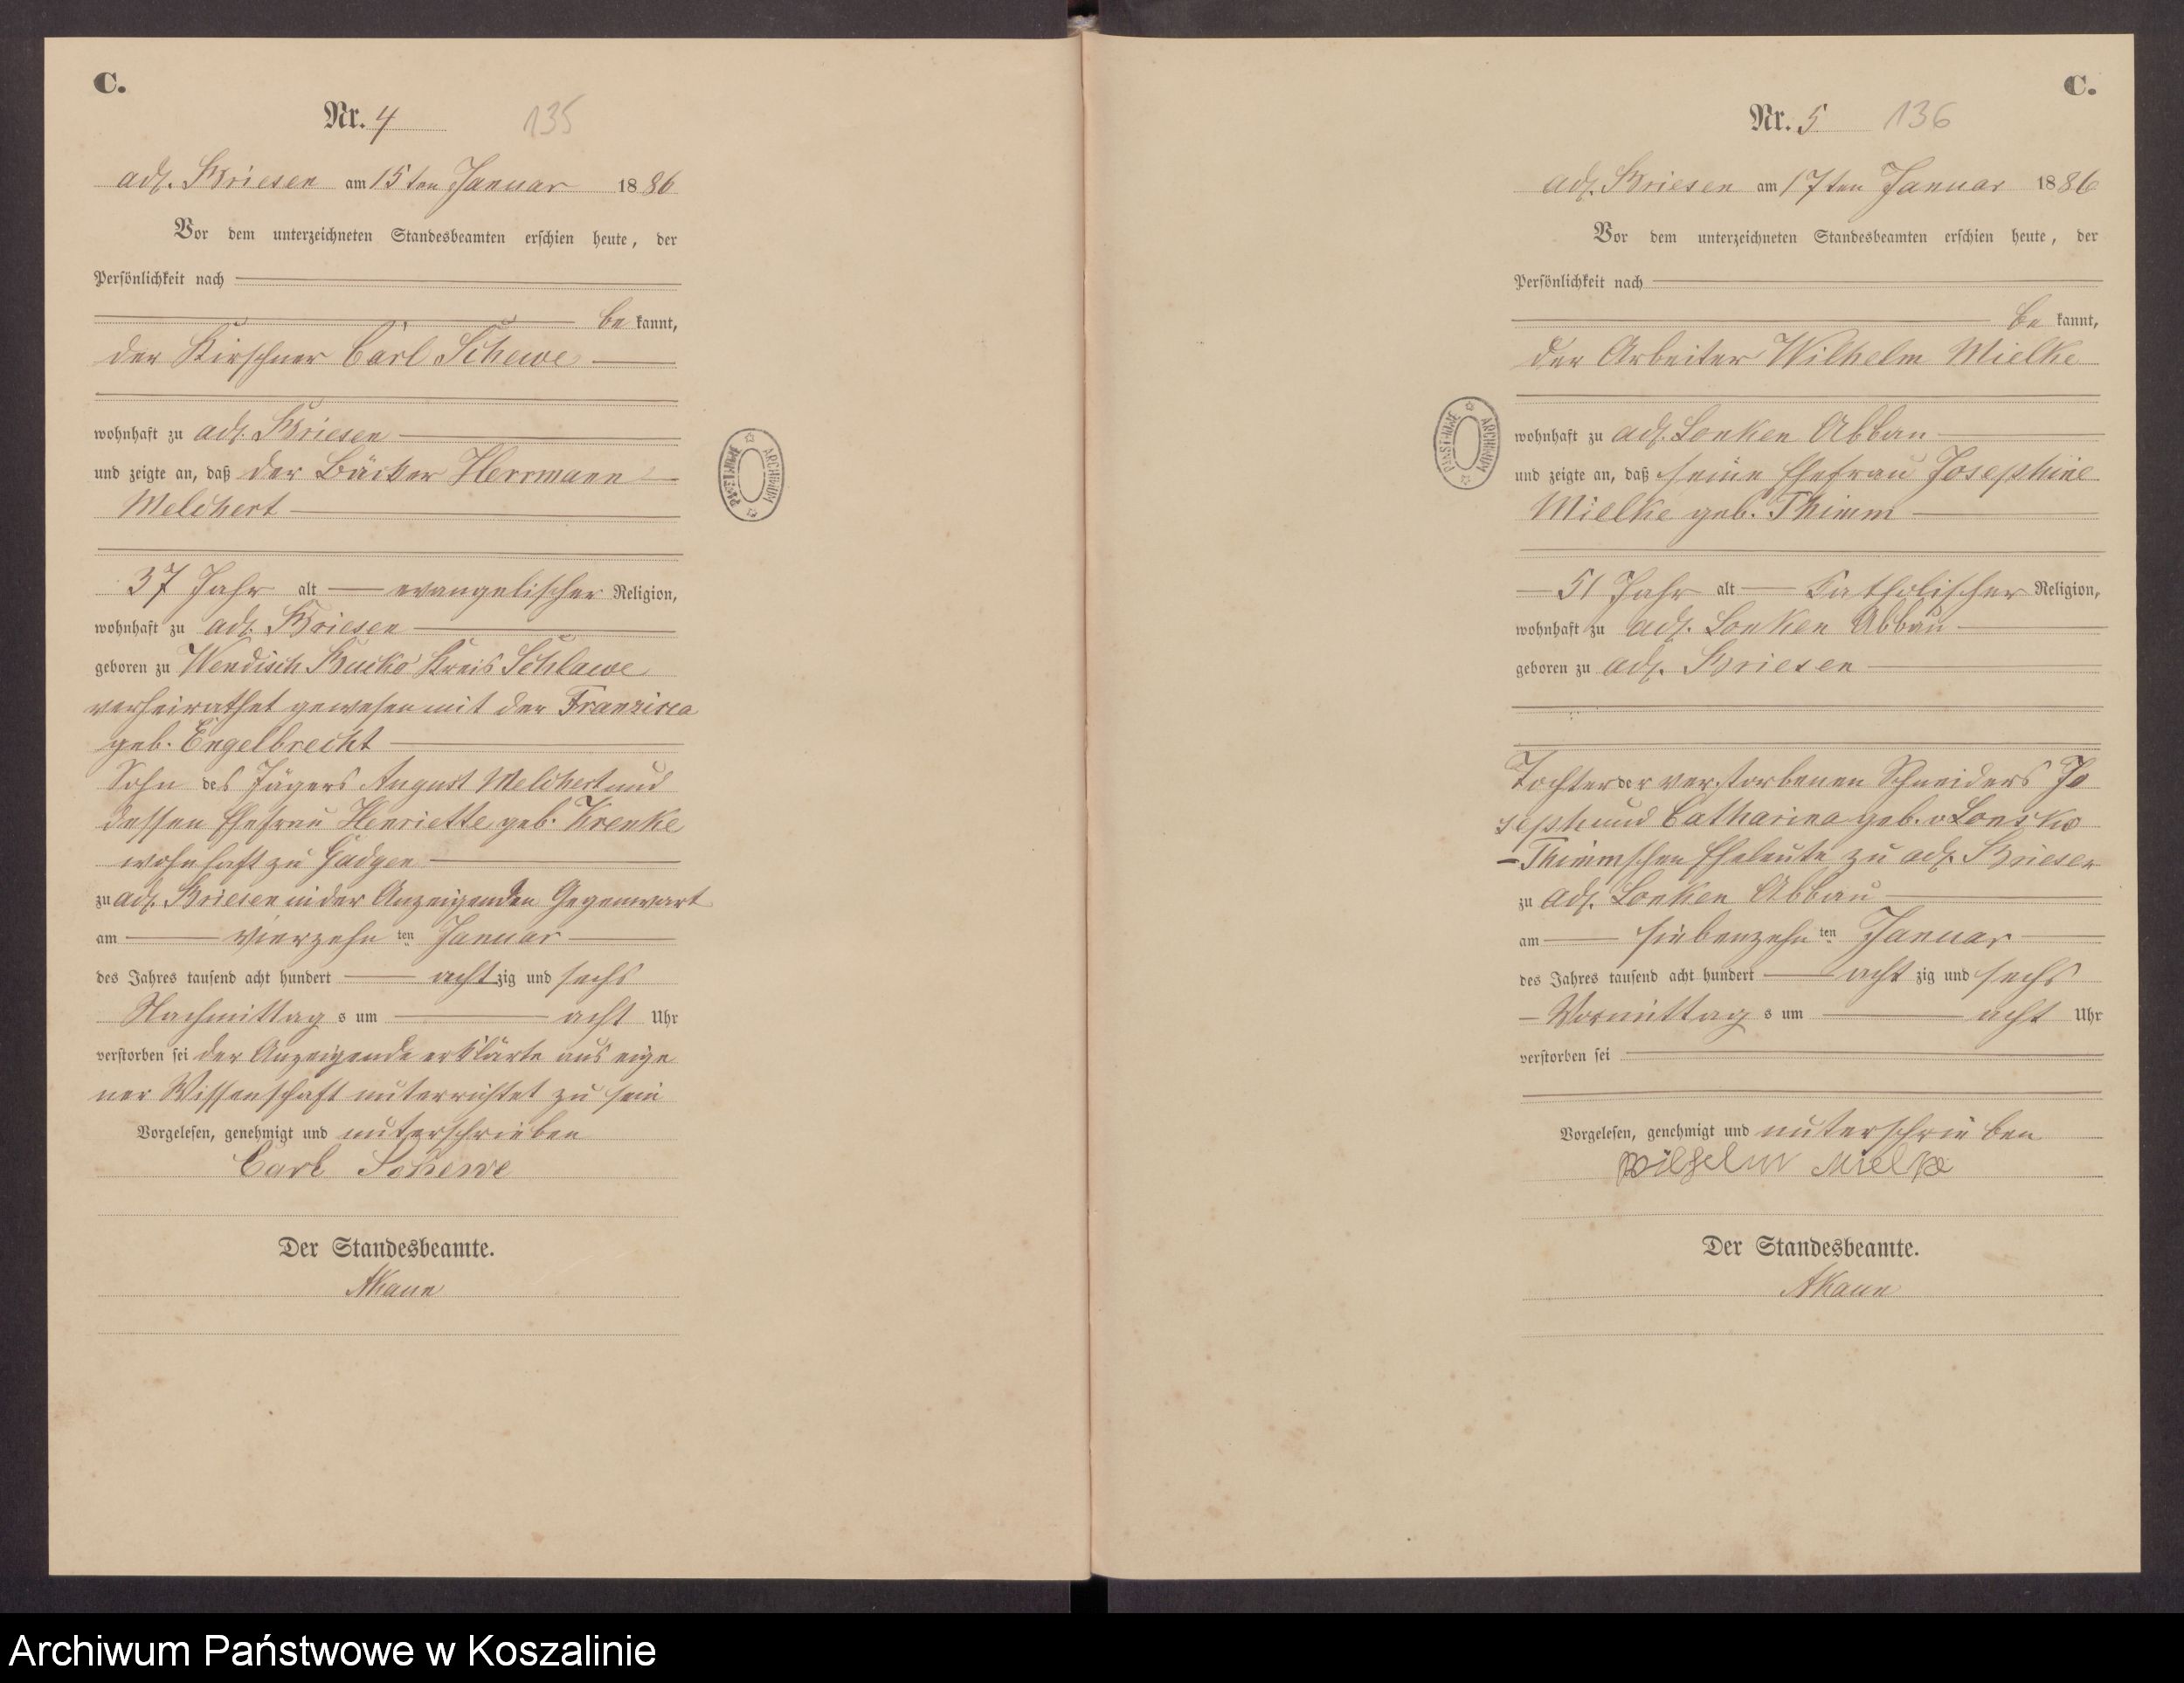 C.
Nr. 4 135
adl. Briesen am 15ten Januar 1886
Vor dem unterzeichneten Standesbeamten erschien heute, der
Persönlichkeit nach
be kannt,
der Kirschner Carl Schewe
wohnhaft zu adl. Briesen
und zeigte an, daß der Bäcker Herrmann
Melchert
37 Jahr alt evangelischer Religion,
wohnhaft zu adl. Briesen
geboren zu Wendisch Buckow Kreis Schlawe
verheirathet gewesen mit der Franzisca
geb. Engelbrecht
Sohn des Jägers August Melchert und
dessen Ehefrau Henriette geb. Krenke
wohnhaft zu Gadgen
zu adl. Briesen in der Anzeigenden Gegenwart
am vierzehn ten Januar
des Jahres tausend acht hundert acht zig und sechs
Nachmittag s um acht Uhr
verstorben sei der Anzeigende erklärte aus eige
ner Wissenschaft unterrichtet zu sein
Vorgelesen, genehmigt und unterschrieben
Carl Schewe
Der Standesbeamte.
C.
Nr. 5 136
adl. Briesen am 17ten Januar 1886
Vor dem unterzeichneten Standesbeamten erschien heute, der
Persönlichkeit nach
be kannt,
der Arbeiter Wilhelm Mielke
wohnhaft zu adl. Lonken Abbau
und zeigte an, daß seine Ehefrau Josephine
Mielke geb. Thimm
51 Jahr alt Katholischer Religion,
wohnhaft zu adl. Lonken Abbau
geboren zu adl. Briesen
Tochter der verstorbenen Schneiders Jo
seph und Catharina geb. v Lonsko
Thimmschen Eheleute zu adl. Briesen
zu adl. Lonken Abbau
am siebenzehn ten Januar
des Jahres tausend acht hundert acht zig und sechs
Vormittag s um acht Uhr
verstorben sei
Vorgelesen, genehmigt und unterschrieben
Wilhelm Mielke
Der Standesbeamte.
ARCHIWUM PAŃSTWOWE
ARCHIWUM PAŃSTWOWE
Archiwum Państwowe w Koszalinie